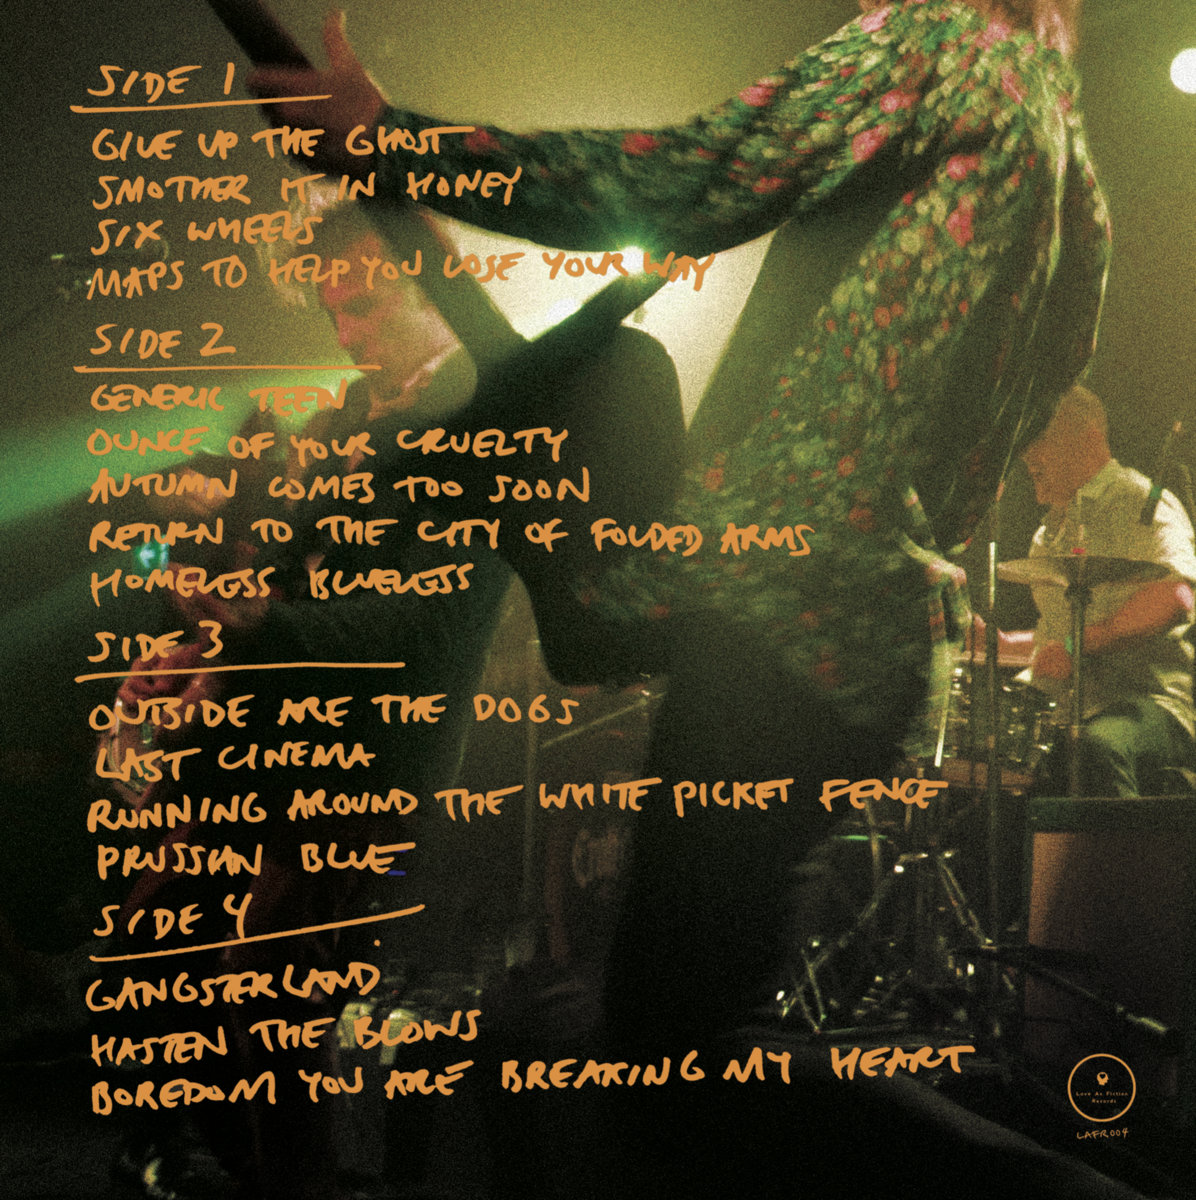 SIDE 1
GIVE UP THE GHOST
SMOTHER IT IN HONEY
SIX WHEELS
MAPS TO HELP YOU LOSE YOUR WAY
SIDE 2
GENERIC TEEN
OUNCE OF YOUR CRUELTY
AUTUMN COMES TOO SOON
RETURN TO THE CITY OF FOLDED ARMS
HOMELESS BLUELESS
SIDE 3
OUTSIDE ARE THE DOGS
LAST CINEMA
RUNNING AROUND THE WHITE PICKET FENCE
PRUSSIAN BLUE
SIDE 4
GANGSTERLAND
HASTEN THE BLOWS
BOREDOM YOU ARE BREAKING MY HEART
Love As Fiction
Records
LAFR004